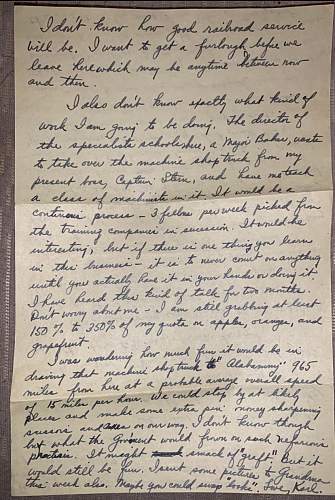 I don't know how good railroad service
will be. I want to get a furlough before we
leave here which may be anytime between now
and then.
I also don't know exactly what kind of
work I am going to be doing. The director of
the specialists school here, a Major Baker, wants
to take over the machine shop truck from my
present boss, Captain Stern, and have me teach
a class of machinists in it. It would be a
continous process - 3 fellows per week picked from
the training companies in succession. It would be
interesting, but if there is one thing you learn
in this business - it is to never count on anything
until you actually have it in your hands or doing it
I have heard this kind of talk for two months.
Don't worry about me - I am still grabbing at least
150% to 350% of my quota on apples, oranges, and
grapefruit.
I was wondering how much fun it would be in
driving that machine shop truck to "Alabammy" 965
miles from here at a probable average overall speed
of 15 miles per hour. We could stop by at likely
places and make some extra pin money sharpening
scissors and axes on our way. I don't know though
but what the Goverment would frown on such nefarious
practices. It might smack of "graft" but it
would still be fun. I sent some pictures to Grandma
this week also. Maybe you could swap looks. Love Karl.